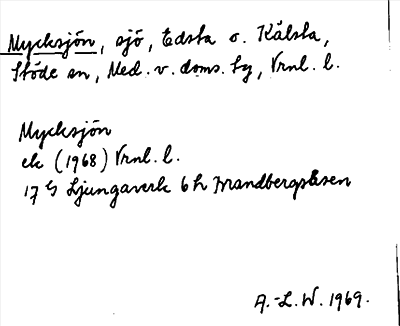 Mycksjön, sjö, Edsta o. Kälsta,
Stöde sn, Med. v. doms. tg, Vrnl. l.
Mycksjön
ek (1968) Vrnl. l.
17 G Ljungaverk 6 h
A.-L. W. 1969.